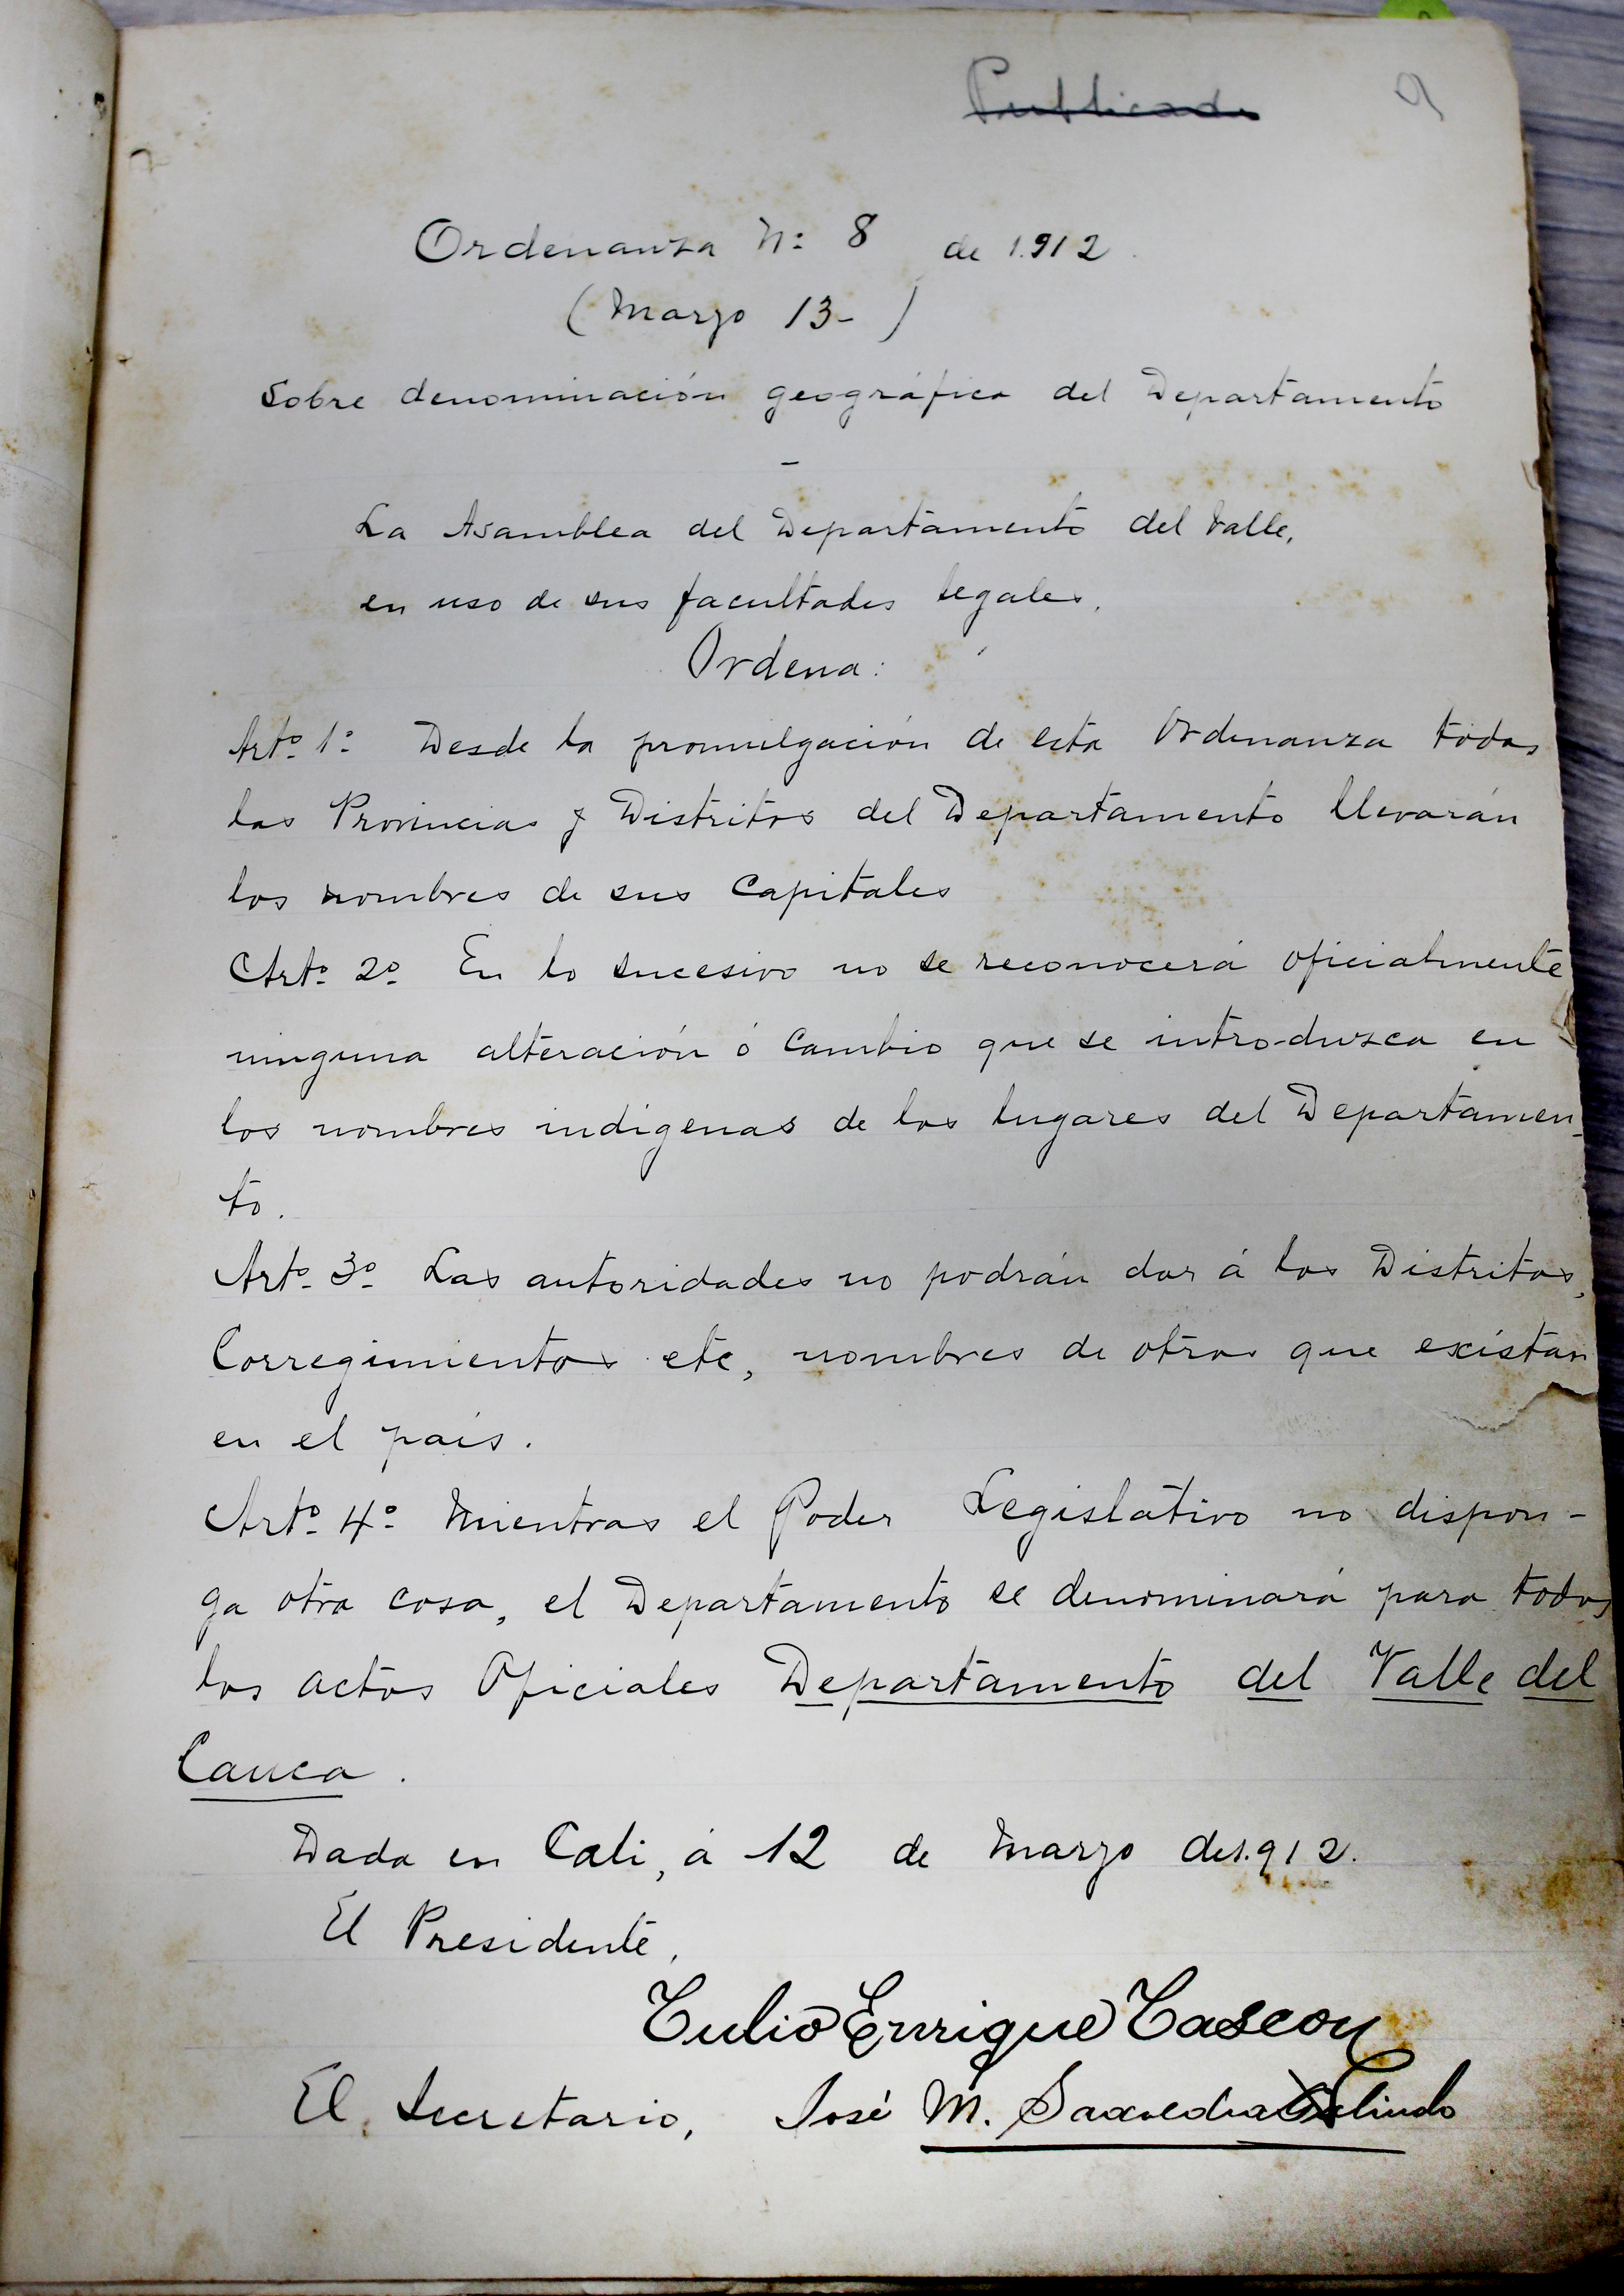 Publicada
9
Ordenanza Nº 8 de 1.912.
(Marzo 13-)
Sobre denominación geográfica del Departamento
-
La Asamblea del Departamento del Valle,
en uso de sus facultades legales,
Ordena:
Artº 1º Desde la promulgación de esta Ordenanza todas
las Provincias y Distritos del Departamento llevarán
los nombres de sus Capitales
Artº 2º En lo sucesivo no se reconocerá oficialmente
ninguna alteración ó Cambio que se introduzca en
los nombres indigenas de los lugares del Departamen-
to.
Artº 3º Las autoridades no podrán dar á los Distritos,
Corregimientos etc, nombres de otros que existan
en el pais.
Artº 4º Mientras el Poder Legislativo no dispon-
ga otra cosa, el Departamento se denominará para todos
los actos Oficiales Departamento del Valle del
Cauca.
Dada en Cali, á 12 de Marzo de 1.912.
El Presidente,
Tulio Enrique Tascon
El Secretario, José M. Saavedra Galindo